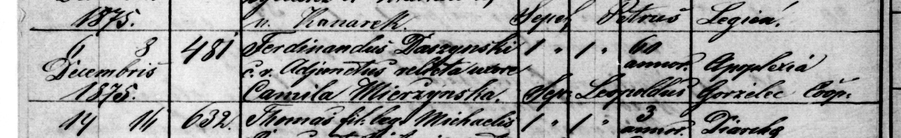 1875. u. Kanarek. Sepel. Petrus Legień.
6 8 481 Ferdinandus Daszynski 1 " 1 " 60
Decembris c. r. Adjunctus relicta uxore annor. Apoplexia
1875. Camila Mierzynska. Sep. Leopoldus Gorzelec Coop.
14 16 632. Thomas fil. leg. Michaelis 1 " 1 " 3
annor. Diarrhea